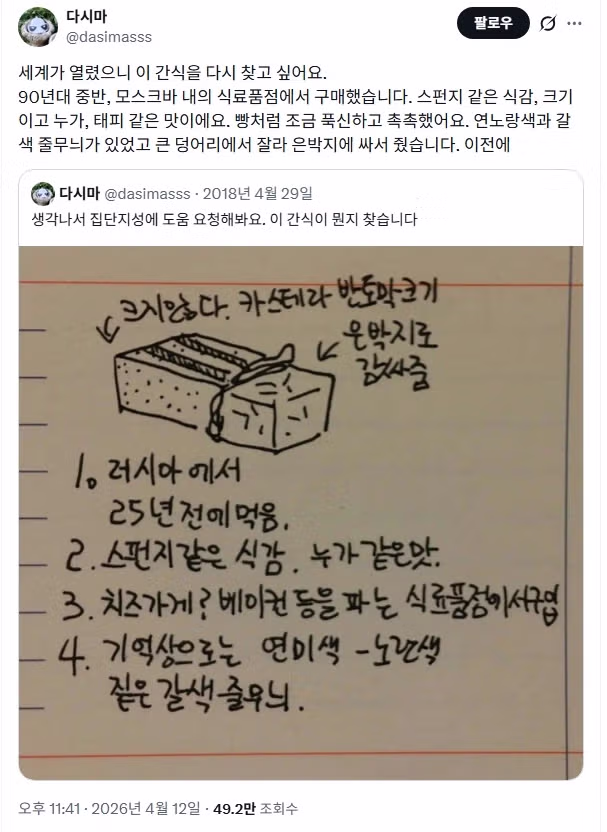 다시마
@dasimasss
팔로우
세계가 열렸으니 이 간식을 다시 찾고 싶어요.
90년대 중반, 모스크바 내의 식료품점에서 구매했습니다. 스펀지 같은 식감, 크기
이고 누가, 태피 같은 맛이에요. 빵처럼 조금 푹신하고 촉촉했어요. 연노랑색과 갈
색 줄무늬가 있었고 큰 덩어리에서 잘라 은박지에 싸서 줬습니다. 이전에
다시마 @dasimasss · 2018년 4월 29일
생각나서 집단지성에 도움 요청해봐요. 이 간식이 뭔지 찾습니다
크지않다. 카스테라 반토막크기
은박지로
감싸줌
1. 러시아에서
25년전에먹음.
2. 스펀지같은 식감. 누가같은맛.
3. 치즈가게? 베이컨 등을 파는 식료품점에서구입
4. 기억상으로는 연미색 - 노란색
짙은 갈색 줄무늬.
오후 11:41 · 2026년 4월 12일 · 49.2만 조회수